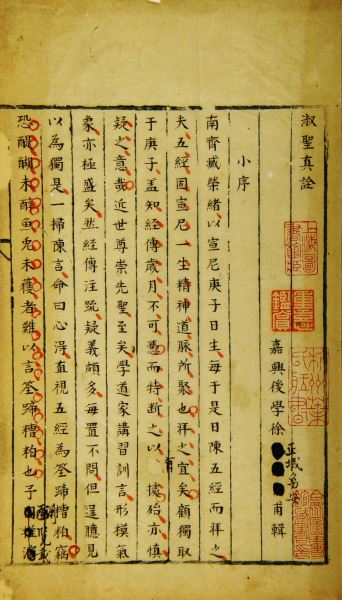 淑聖真詮
嘉興後學徐
甫輯
小序
南齊臧榮緒以宣尼庚子日生每于是日陳五經而拜之
夫五經固宣尼一生精神道脉所聚也拜之宜矣顧獨取
于庚子盖知經傳歲月不可憑而特斷之以 據殆亦慎
疑之意哉近世尊崇先聖至矣學道家講習訓言形模氣
象亦極盛矣然經傳注疏疑義頗多每置不問但逞臆見
以為獨是一掃陳言命曰心淂直視五經為筌蹄糟柏竊
恐醍醐未醇魚兎未獲者難以言筌蹄糟柏也子